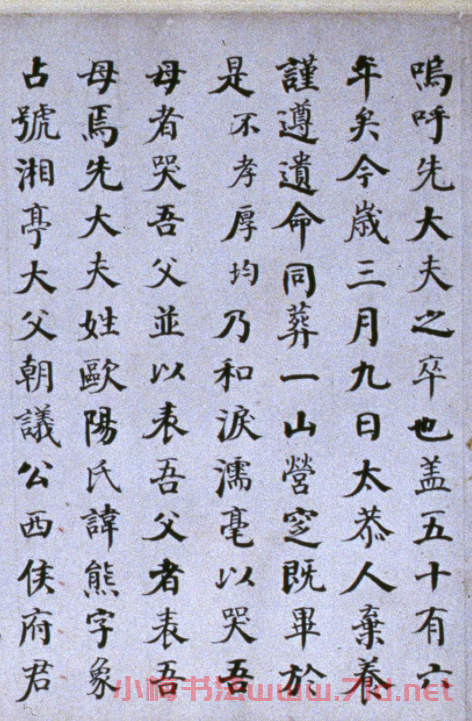 嗚呼先大夫之卒也盖五十有六
年矣今歳三月九日太恭人棄養
謹遵遺命同葬一山營窆既畢於
是不孝厚均乃和淚濡毫以哭吾
母者哭吾父並以表吾父者表吾
母焉先大夫姓歐陽氏諱熊字象
占號湘亭大父朝議公西侯府君
小梅书法www.7ld.net